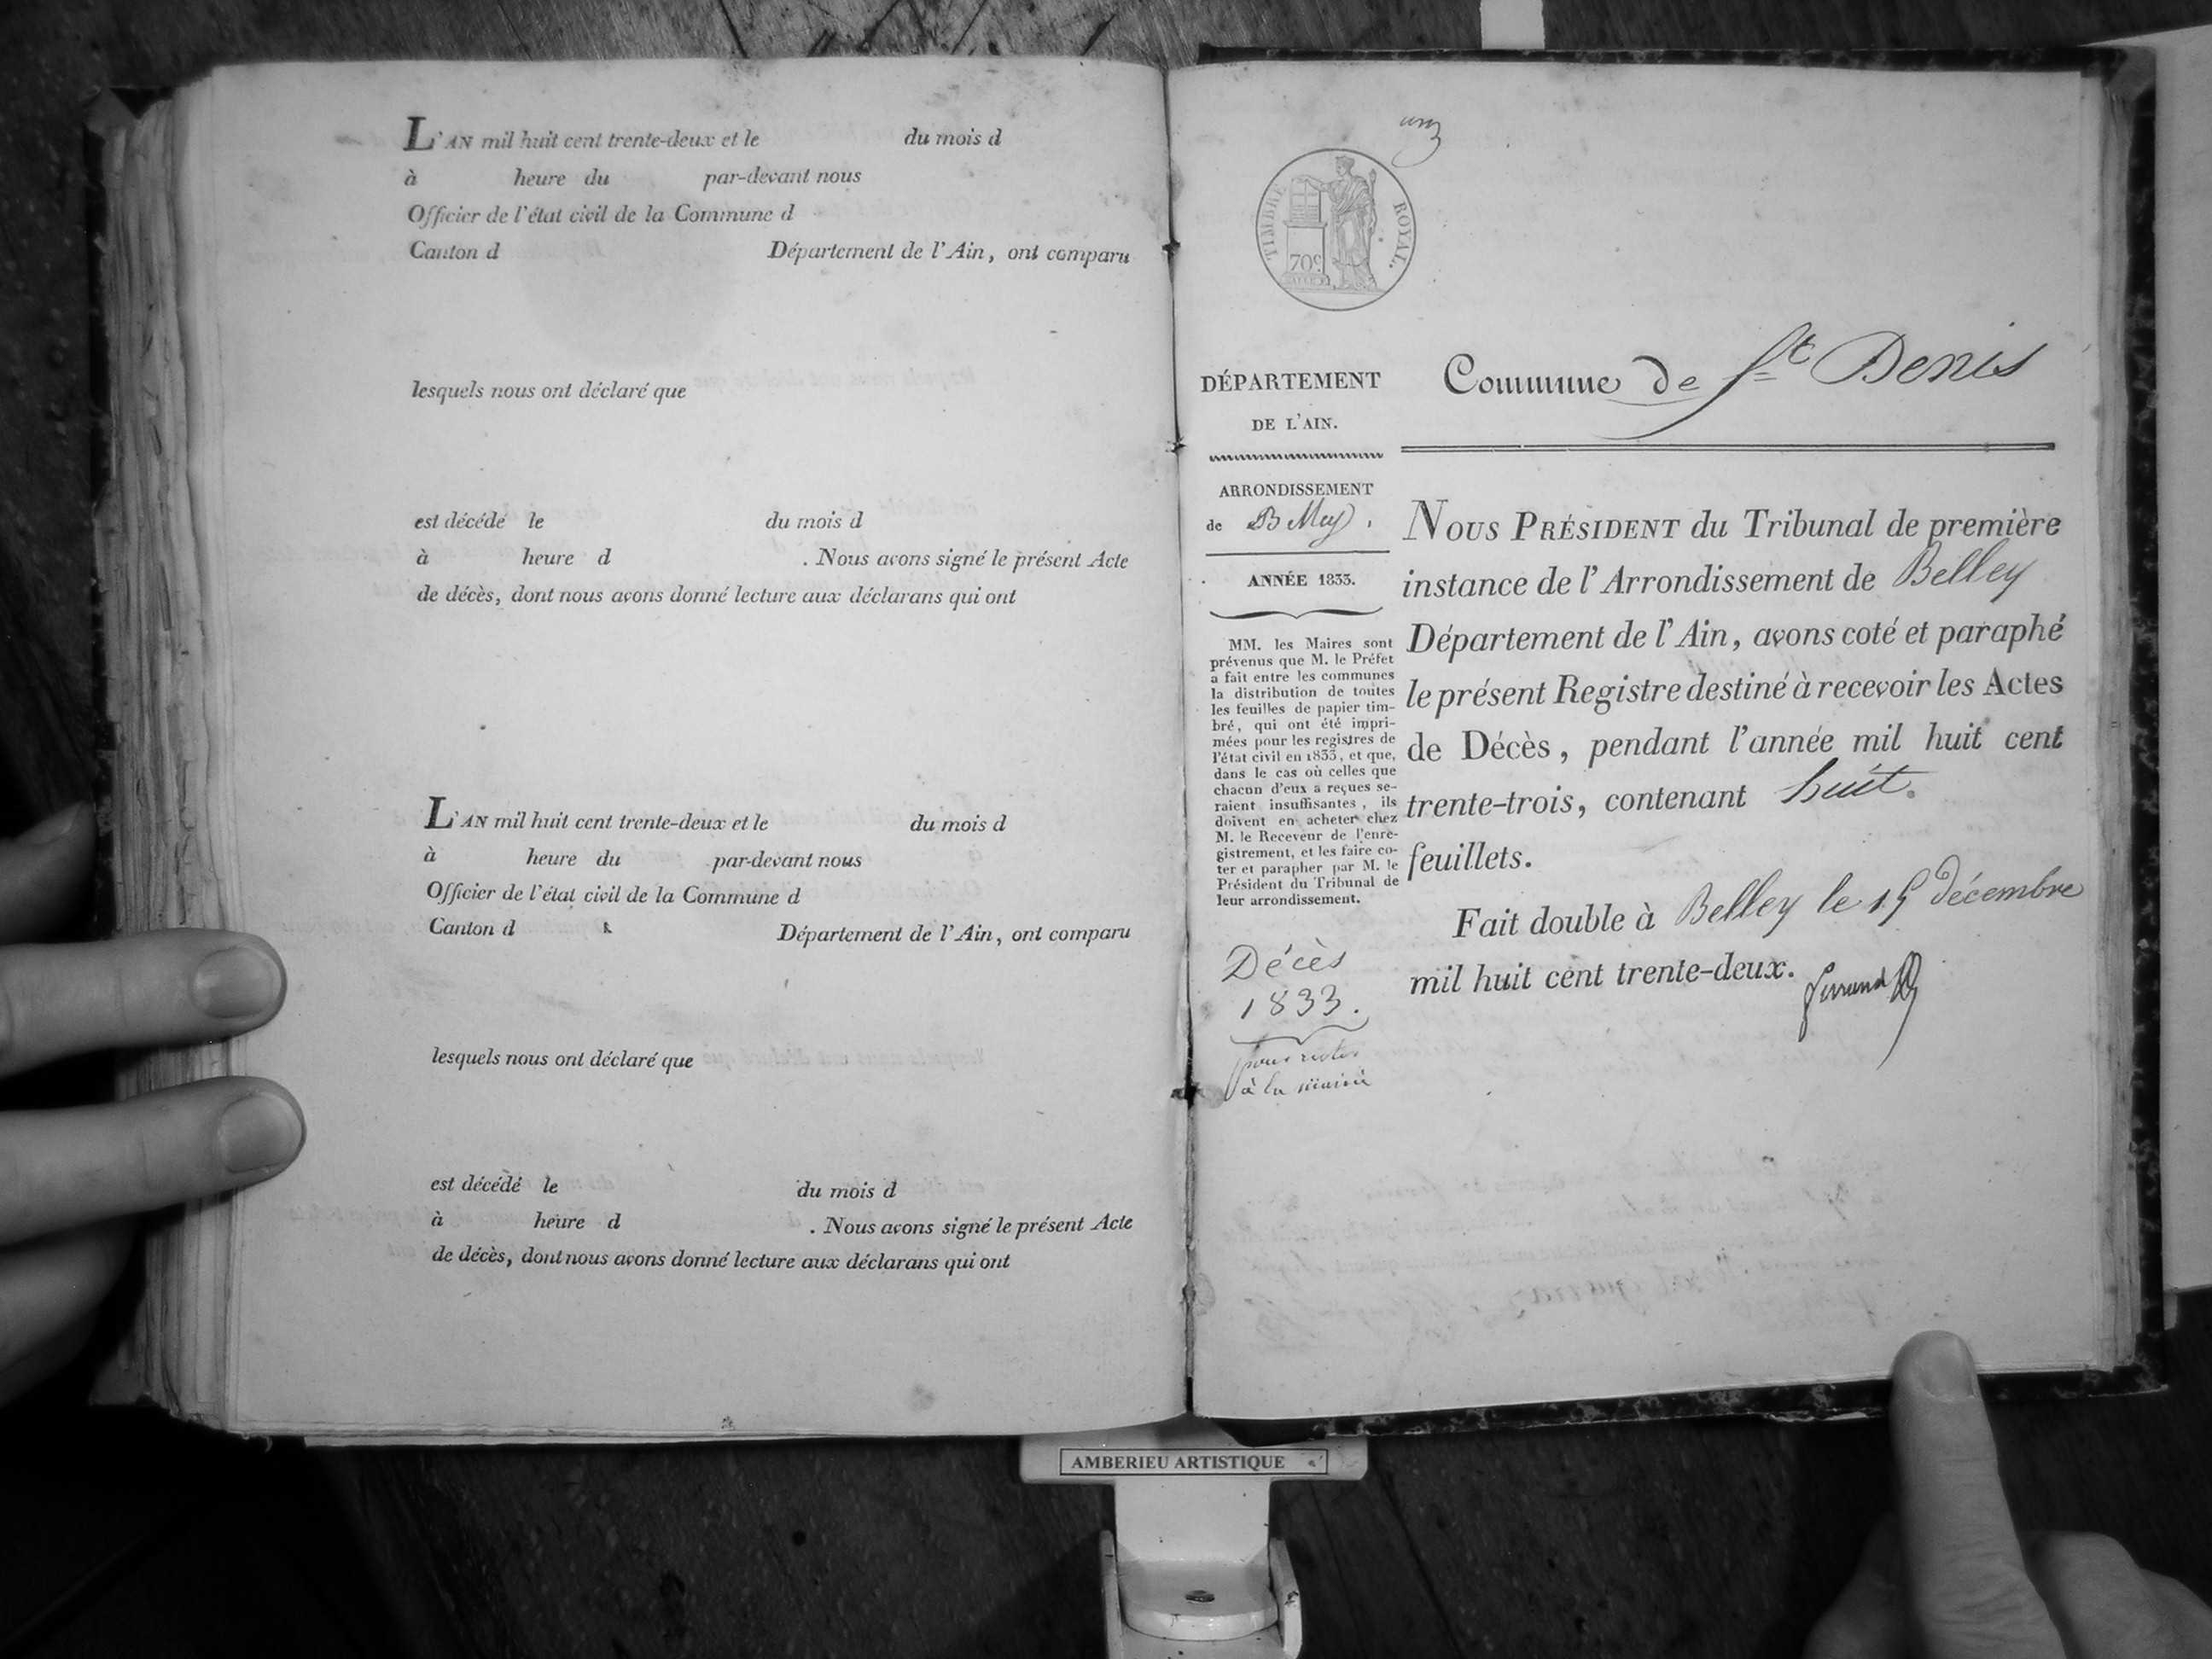 L'AN mil huit cent trente-deux et le du mois d
à heure du par-devant nous
Officier de l'état civil de la Commune d
Canton d Département de l'Ain, ont comparu
lesquels nous ont déclaré que
est décédé le du mois d
à heure d . Nous avons signé le présent Acte
de décès, dont nous avons donné lecture aux déclarans qui ont
L'AN mil huit cent trente-deux et le du mois d
à heure du par-devant nous
Officier de l'état civil de la Commune d
Canton d Département de l'Ain, ont comparu
lesquels nous ont déclaré que
est décédé le du mois d
à heure d . Nous avons signé le présent Acte
de décès, dont nous avons donné lecture aux déclarans qui ont
TIMBRE ROYAL.
70c
DÉPARTEMENT
DE L'AIN.
ARRONDISSEMENT
de Belley.
ANNÉE 1833.
MM. les Maires sont
prévenus que M. le Préfet
a fait entre les communes
la distribution de toutes
les feuilles de papier tim-
bré, qui ont été impri-
mées pour les registres de
l'état civil en 1833, et que,
dans le cas où celles que
chacun d'eux a reçues se-
raient insuffisantes, ils
doivent en acheter chez
M. le Receveur de l'enre-
gistrement, et les faire co-
ter et parapher par M. le
Président du Tribunal de
leur arrondissement.
Décès
1833.
pour rester
à la mairie
Commune de St Denis
NOUS PRÉSIDENT du Tribunal de première
instance de l'Arrondissement de Belley
Département de l'Ain, avons coté et paraphé
le présent Registre destiné à recevoir les Actes
de Décès, pendant l'année mil huit cent
trente-trois, contenant huit.
feuillets.
Fait double à Belley le 15 décembre
mil huit cent trente-deux.
AMBERIEU ARTISTIQUE